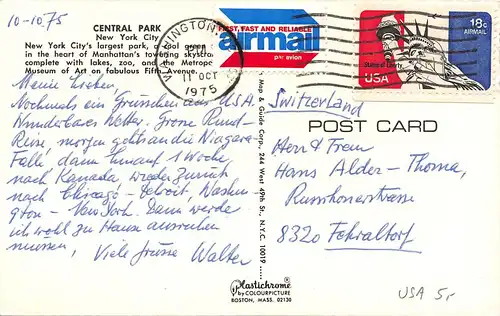 10-10 75
CENTRAL PARK
New York City
New York City's largest park, a cool green
in the heart of Manhattan's towering skyscra
complete with lakes, zoo, and the Metropo
Museum of Art on fabulous Fifth Avenue.
WASHINGTON
11 OCT
1975
FIRST, FAST AND RELIABLE
airmail
par avion
18c
AIRMAIL
USA
Statue of Liberty
Meine Lieben,
Nochmals ein Grüsschen aus USA.
Wunderbares Wetter. Grosse Rund-
Reise, morgen gehts an die Niagara-
Fälle dann hinauf 1 Woche
nach Kanada, wieder zurück
nach Chicago - Detroit, Washin-
gton - New York. Dann werde
ich wohl zu Hause ausruhen
müssen, Viele Grüsse Walter
Map & Guide Corp., 244 West 49th St., N.Y.C. 10019
Plastichrome®
by COLOURPICTURE
BOSTON, MASS. 02130
Switzerland
POST CARD
Herr & Frau
Hans Alder-Thoma,
Russikonerstrasse
8320 Fehraltorf
USA 5.-